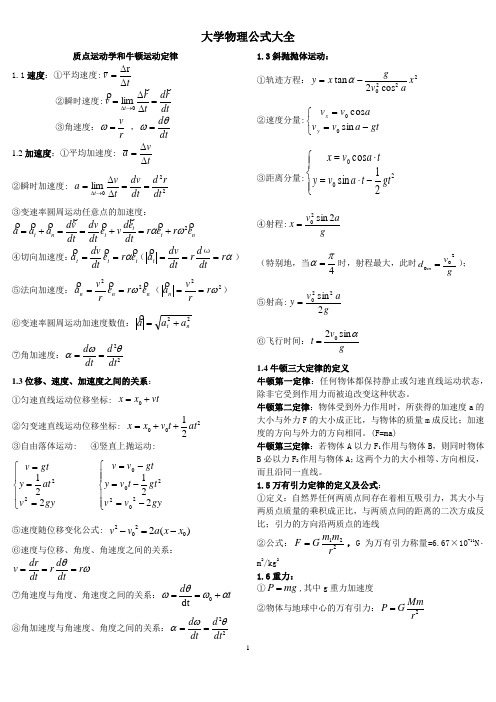 大学物理公式大全
质点运动学和牛顿运动定律
1.1速度：①平均速度: v̅ = Δr/Δt
②瞬时速度: v⃗ = lim(Δt→0) Δr⃗/Δt = dr⃗/dt
③角速度：ω = v/r ，ω = dθ/dt
1.2加速度：①平均加速度: a̅ = Δv/Δt
②瞬时加速度: a = lim(Δt→0) Δv/Δt = dv/dt = d²r/dt²
③变速率圆周运动任意点的加速度：
a⃗ = a⃗t + a⃗n = dv⃗/dt = dv/dt e⃗t + v de⃗t/dt = rαe⃗t + rω²e⃗n
④切向加速度: a⃗t = dv/dt e⃗t = rαe⃗t (|a⃗t| = dv/dt = r dω/dt = rα )
⑤法向加速度: a⃗n = v²/r e⃗n = rω²e⃗n （|a⃗n| = v²/r = rω²）
⑥变速率圆周运动加速度数值: |a⃗| = √(at² + an²)
⑦角加速度：α = dω/dt = d²θ/dt²
1.3位移、速度、加速度之间的关系：
①匀速直线运动位移坐标: x = x₀ + vt
②匀变速直线运动位移坐标: x = x₀ + v₀t + 1/2 at²
③自由落体运动: ④竖直上抛运动:
v = gt v = v₀ − gt
y = 1/2 at² y = v₀t − 1/2 gt²
v² = 2gy v² = v₀² − 2gy
⑤速度随位移变化公式: v² − v₀² = 2a(x − x₀)
⑥速度与位移、角度、角速度之间的关系：
v = dr/dt = r dθ/dt = rω
⑦角速度与角度、角速度之间的关系：ω = dθ/dt = ω₀ + αt
⑧角加速度与角速度、角度之间的关系：α = dω/dt = d²θ/dt²
1.3斜抛抛体运动:
①轨迹方程: y = x tan α − g/(2v₀² cos² a) x²
②速度分量: vx = v₀ cos a
vy = v₀ sin a − gt
③距离分量: x = v₀ cos a · t
y = v₀ sin a · t − 1/2 gt²
④射程: x = v₀² sin 2a/g
（特别地，当α = π/4 时，射程最大，此时 d₀m = v₀²/g ）；
⑤射高: y = v₀² sin² a/2g
⑥飞行时间：t = 2v₀ sin α/g
1.4牛顿三大定律的定义
牛顿第一定律：任何物体都保持静止或匀速直线运动状态，
除非它受到作用力而被迫改变这种状态。
牛顿第二定律：物体受到外力作用时，所获得的加速度 a 的
大小与外力 F 的大小成正比，与物体的质量 m 成反比；加速
度的方向与外力的方向相同。(F=ma)
牛顿第三定律：若物体 A 以力 F₁ 作用与物体 B，则同时物体
B 必以力 F₂ 作用与物体 A；这两个力的大小相等、方向相反，
而且沿同一直线。
1.5万有引力定律的定义及公式：
①定义：自然界任何两质点间存在着相互吸引力，其大小与
两质点质量的乘积成正比，与两质点间的距离的二次方成反
比；引力的方向沿两质点的连线
②公式：F = G m₁m₂/r² ，G 为万有引力称量=6.67×10⁻¹¹N·
m²/kg²
1.6重力：
① P = mg ,其中 g 重力加速度
②物体与地球中心的万有引力: P = G Mm/r²
1